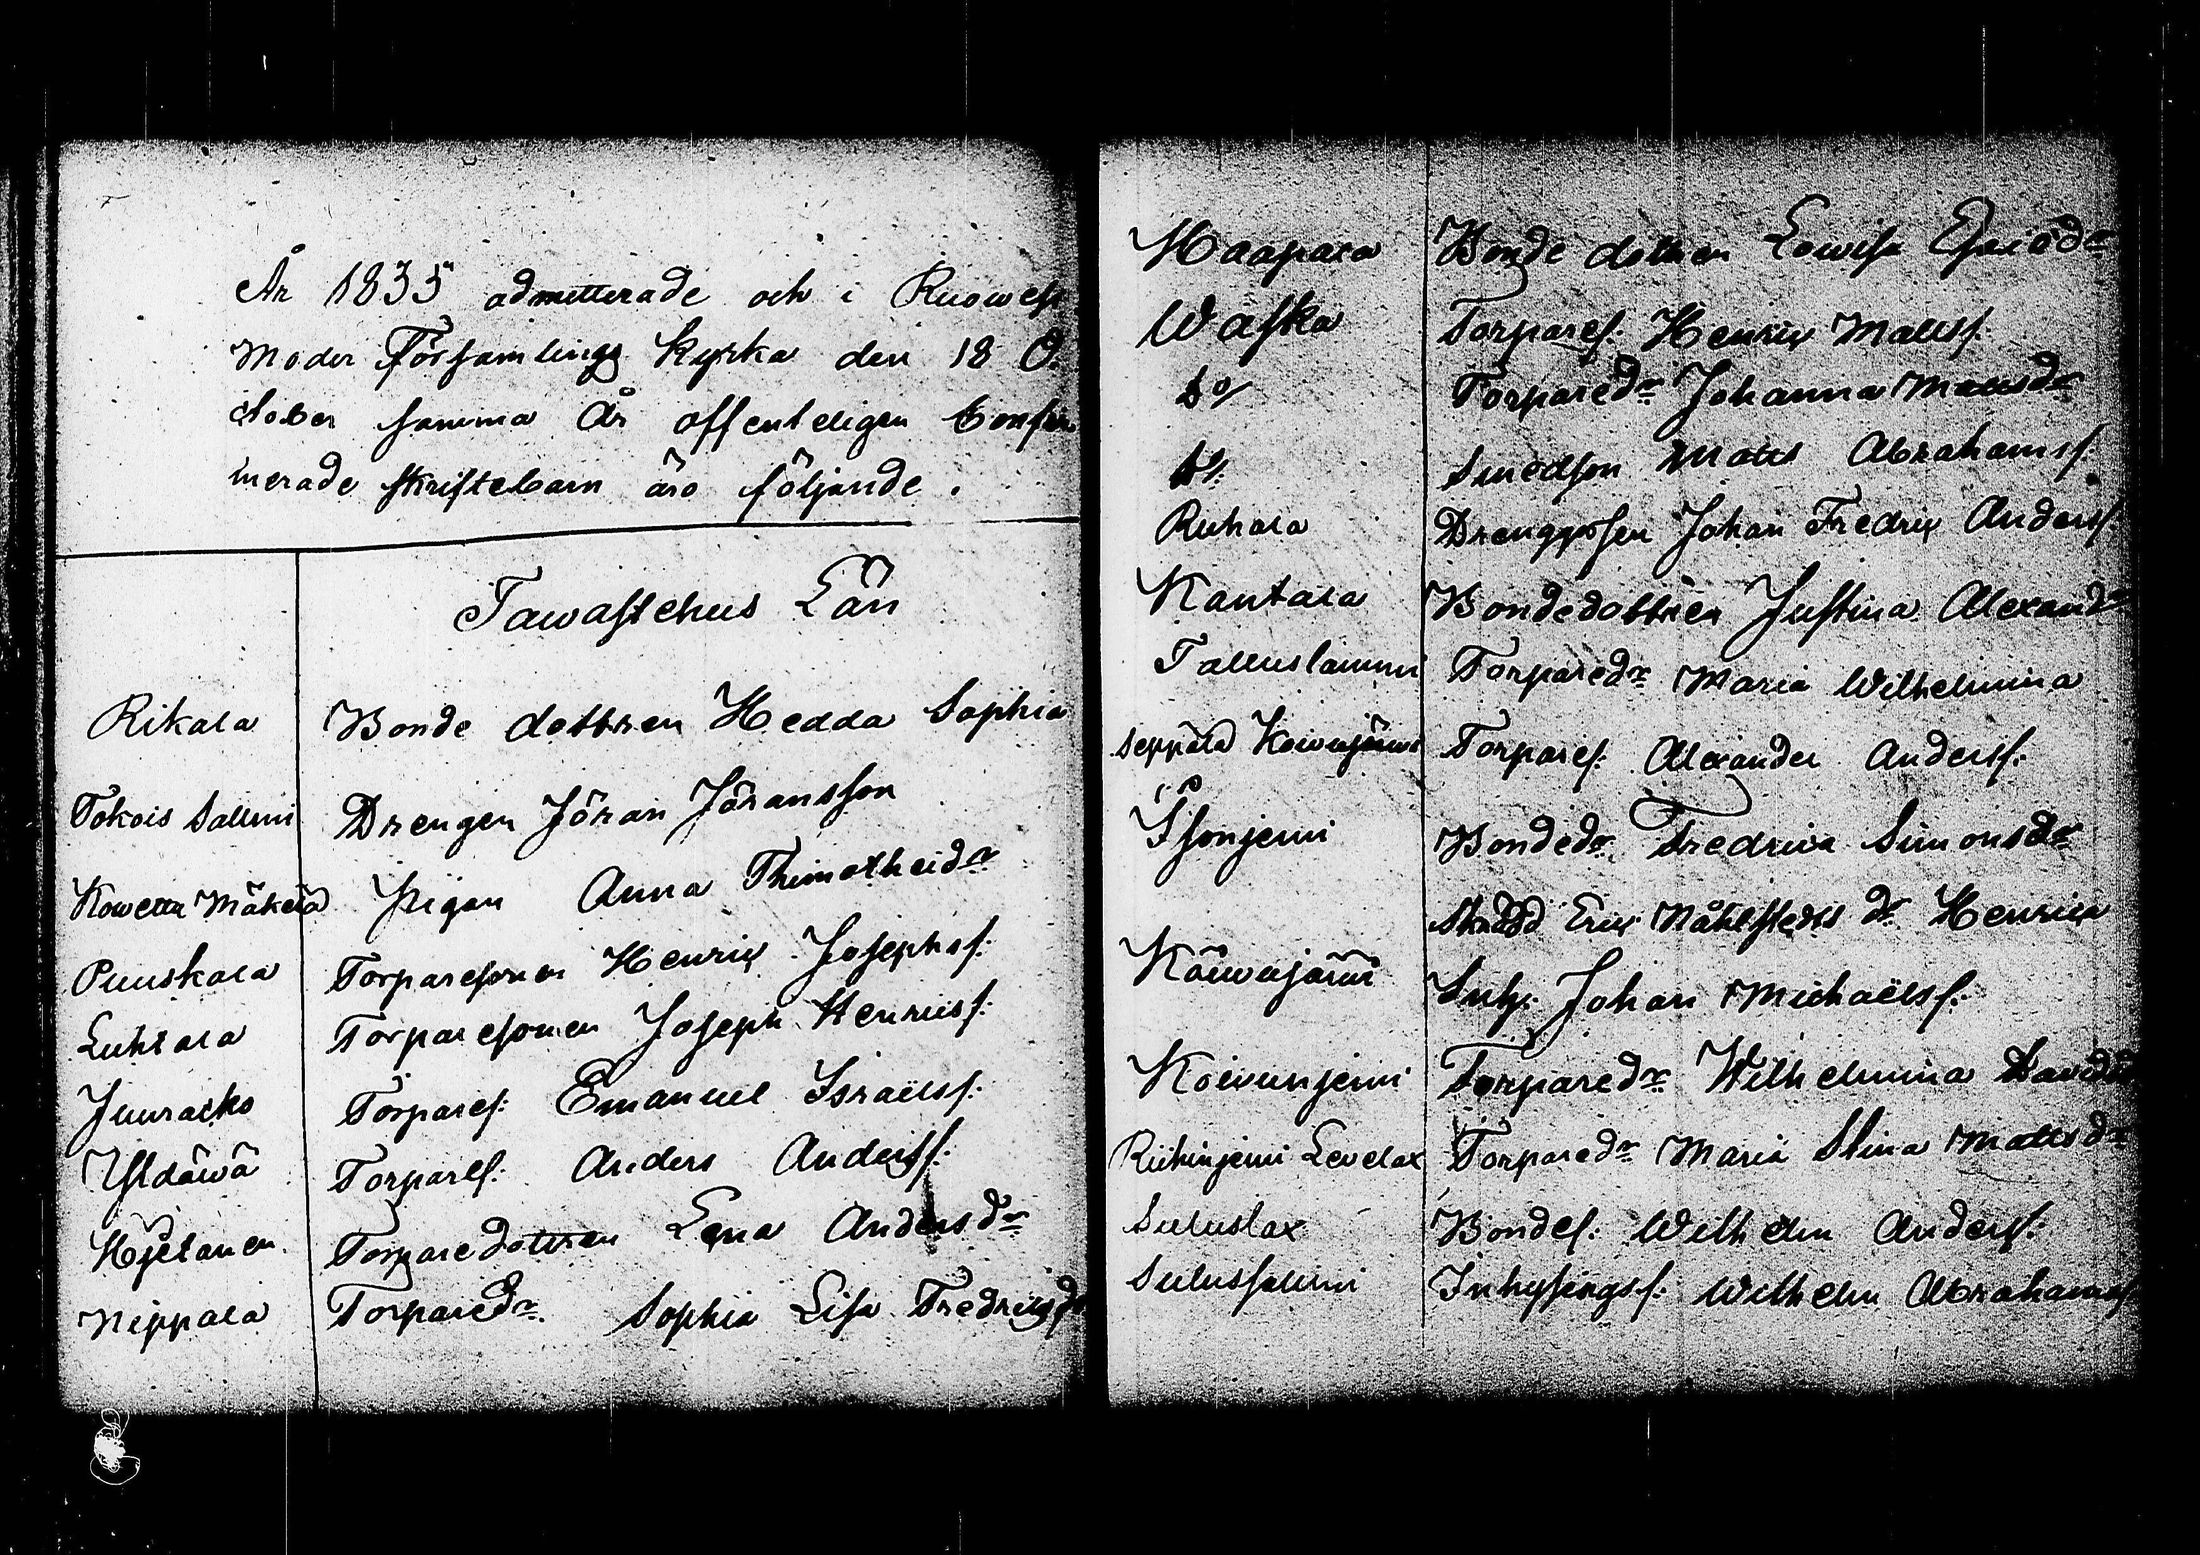 År 1835 admitterade och i Ruowesi
Moder Församlings Kyrka den 18 O.
ctober samma År offenteligen Confir
merade skriftebarn äro följande.
Tawastehus Län
Rikala Bonde dottren Hedda Sophia
Tokois Salmi Drengen Jöran Jöransson
Kowetta Mäkelä Pigan Anna Thimotheidr
Puuskala Torparesonen Henric Josephs.
Luhtala Torparesonen Joseph Henrics.
Juurakko Torpares. Emanuel Israëls.
Torpares. Anders Anderss.
Hyetanen Torparedottren Lena Andersdr
Nippala Torparedr. Sophia Lisa Fredricsdr
Haapala Bonde dottren Lowisa
Waska Torpares. Henric Matts.
Do Torparedr Johanna Mattsdr
Do Smedson Matts Abrahamss.
Ruhala Johan Fredric Anderss.
Kantala Bondedottren Justina Alexand
Torparedr Maria Wilhelmina
Seppälä Koiwujärwi Torpares. Alexander Anderss.
Isonjemi Bondedr. Fredrica Simonsdr
Eric dr Henrica
Inhs. Johan Michaëls.
Koivunjemi Torparedr Wilhelmina Davids
Riihinjemi Levelax Torparedr Maria Stina Mattsdr
Suluslax Bondes. Wilhelm Anderss.
Sulussalmi Inhysings. Wilhelm Abrahamss